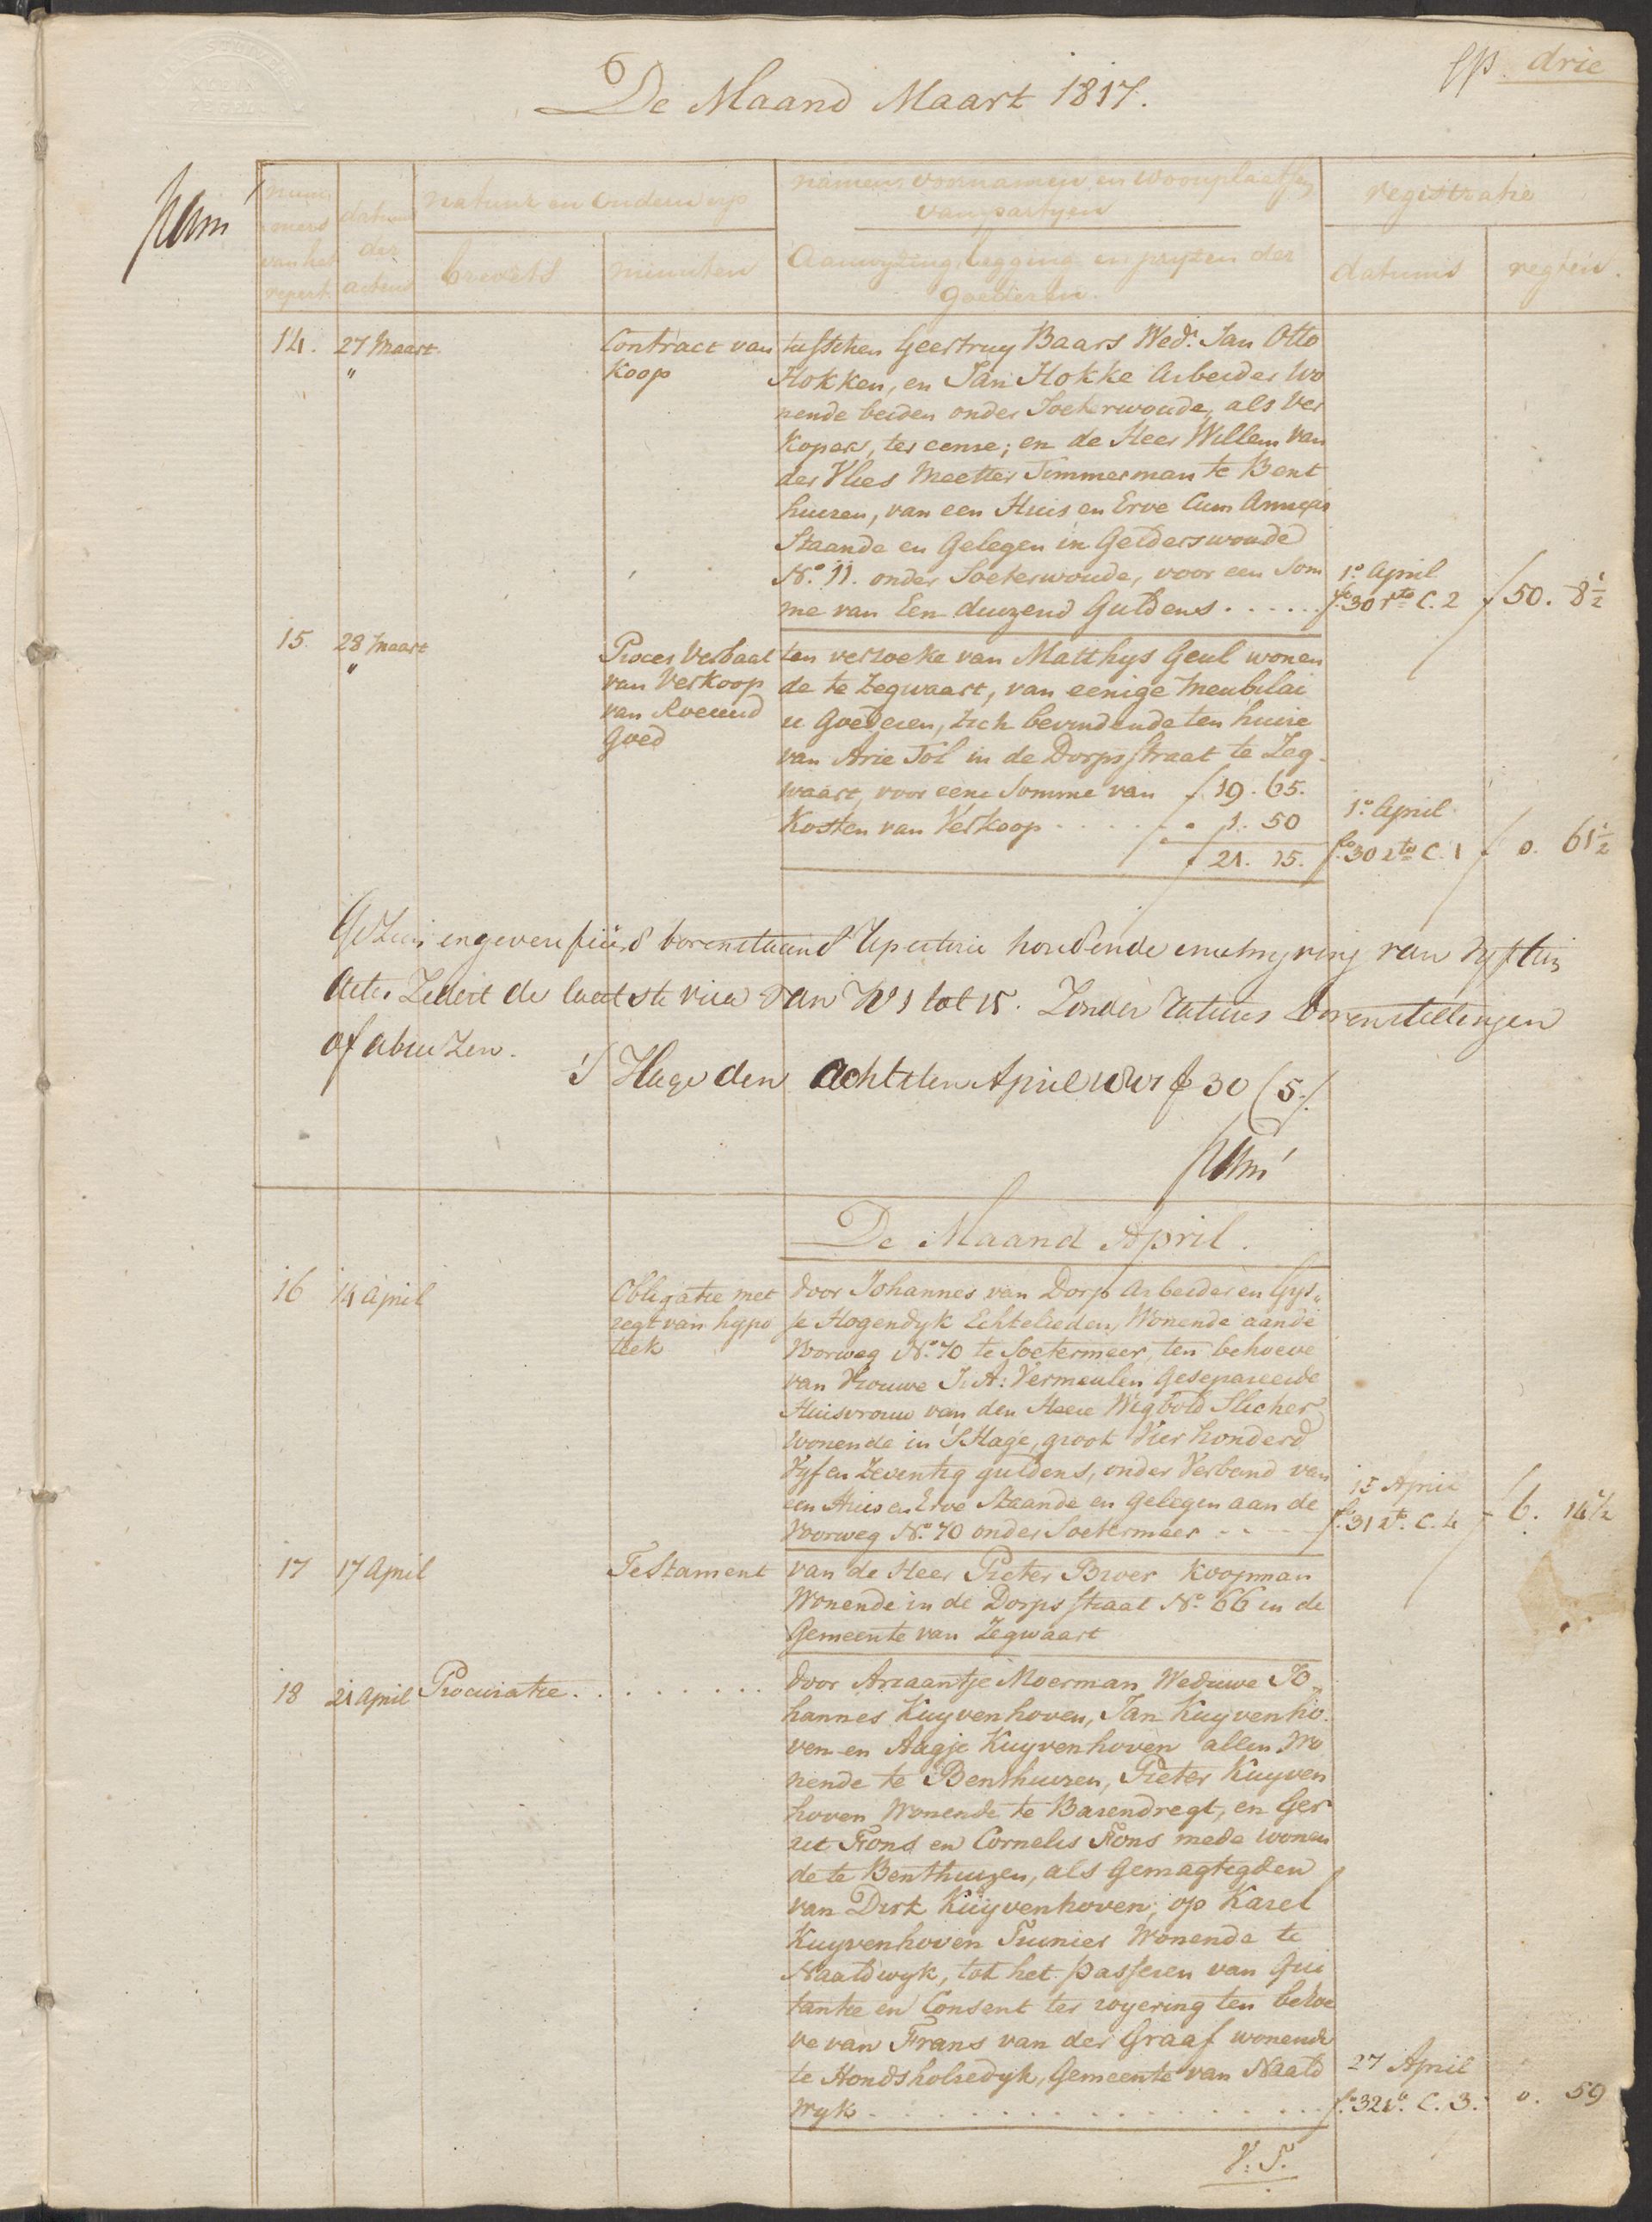 drie
De Maand Maart 1817.
num
mers
van het
repert.
datums
der
actens
natuur en onderwerp
brevets
minuten
namen, voornamen, en woonplaatsen
van partyen
Aanwyzing, legging en pryzen der
goederen.
registratie
datums
regten.
14.
27 Maart
"
Contract van
Koop
tusschen Geertruy Baars Wed: Jan Otto
Hokken, en Jan Hokke Arbeider Wo
nende beiden onder Soeterwoude, als Ver
kopers, ter eenre; en de Heer Willem van
der Vlies Meester Timmerman te Bent
huizen, van een Huis en Erve Cum Annexis
Staande en Gelegen in Gelderswoude
No. 11. onder Soeterwoude, voor een Som
me van Een duizend Guldens . . . . . .
1o. April
fo. 30 rto C. 2
f 50. 8 1/2
15.
28 Maart
"
Proces Verbaal
van Verkoop
van Roerend
goed
ten verzoeke van Matthys Geul wonen
de te Zegwaart, van eenige Meubilai
re Goederen, zich bevindende ten huize
van Arie Tol in de Dorpsstraat te Zeg-
waart, voor eene Somme van f 19. 65.
Kosten van Verkoop . . . . . " 1. 50
f 21. 15.
1o. April
fo 30 rto C. 1
f 0. 61 1/2
Gezien en geverifiëerd bovenstaand Repertorie houdende inschryving van vyftien
Actes Zedert de laatste visa van No 1 tot 15. Zonder ratures bovenstellingen
of abuizen.
's Hage den achtsten April 1817 f 30 (5.)
De Maand April.
16
14 April
Obligatie met
regt van hypo
teek
door Johannes van Dorp Arbeider en Gys„
je Hogendyk Echtelieden, Wonende aan de
Voorweg No. 70 te Soetermeer, ten behoeve
van Vrouwe J: A: Vermeulen Gesepareerde
Huisvrouw van den Heere Wigbold Slicher
Wonende in 'SHage, groot Vier honderd
Vyf en Zeventig guldens, onder Verband van
een Huis en Erve Staande en gelegen aan de
Voorweg No. 70 onder Soetermeer . . . . .
15 April
fo. 31 vo. C. 4
f 6. 14 1/2
17
17 April
Testament
van de Heer Pieter Broer Koopman
Wonende in de Dorpsstraat No. 66 in de
Gemeente van Zegwaart
18
21 April
Procuratie . . . . . . . . .
door Ariaantje Moerman Weduwe Jo„
hannes Kuyvenhoven, Jan Kuyvenho
ven en Aagje Kuyvenhoven allen Wo
nende te Benthuizen, Pieter Kuyven
hoven Wonende te Barendregt, en Ger
rit Fons en Cornelis Fons mede wonen
de te Benthuizen, als Gemagtigden
van Dirk Kuyvenhoven, op Karel
Kuyvenhoven Tuinier Wonende te
Naaldwyk, tot het passeren van Qui
tantie en Consent ter royering ten behoe
ve van Frans van der Graaf wonende
te Hondsholredyk, Gemeente van Naald
wyk . . . . . . . . . . . . . . .
27 April
fo. 32 vo. C. 3.
0. 59
V: T.